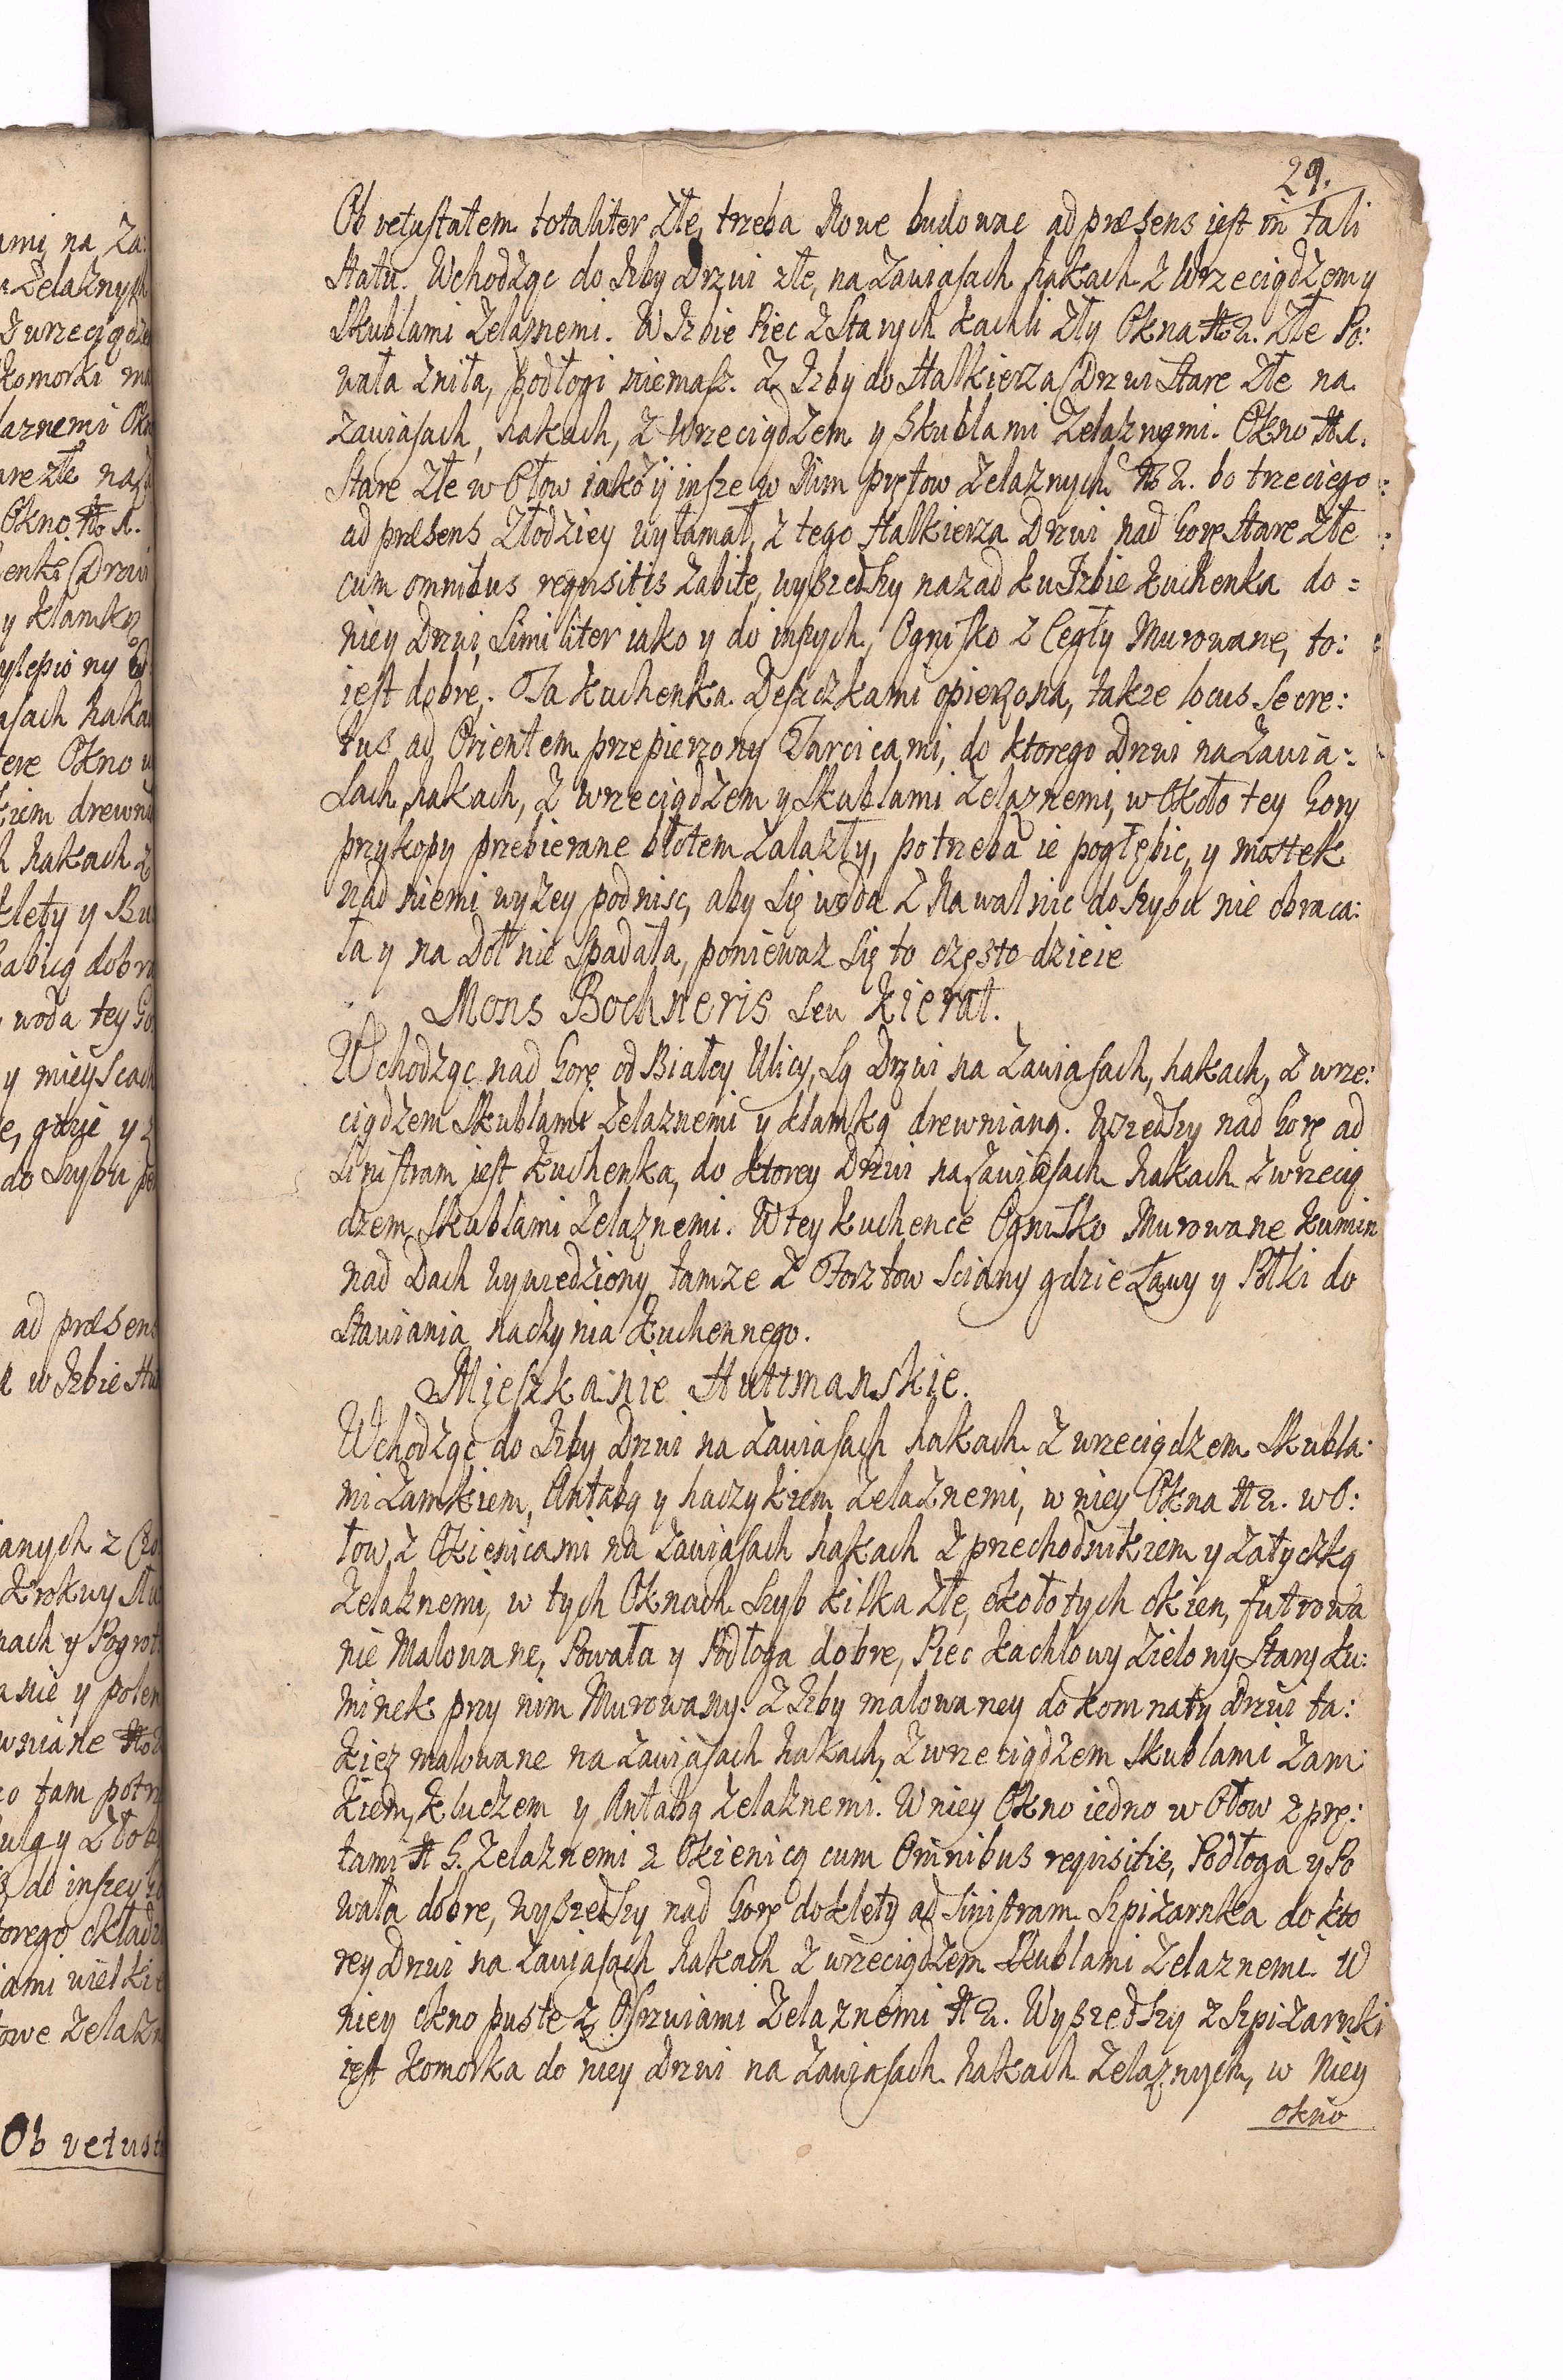 ami na Za:
Zelaznych
Z wrzeciądze
komorki ma
laznemi Okn
are złe na
Okno No 1.
enki Drzwi
y klamką
ylepiony
asach haka
ere Okno w
kiem drewni
h hakach z
klety y Bu
abią dobr
woda tey Go
y mieyscach
e, gdzie y z
do Szybu
ad præsens
a w Izbie Hu
anych z
krokwy Słu
nach y Pogrot
anie y poten
wniane No
co tam potr
ulą y Złob
do inszey
torego okład
iami wielkie
towe Zelazn
Ob vetust
29.
Ob vetustatem totaliter złe, trzeba Nowe budowac ad præsens jest in tali
Statu. Wchodząc do Izby Drzwi złe, na Zawiasach hakach z Wrzeciądzem y
Skublami Zelaznemi. W Izbie Piec z Starych kachli Zły Okna No 2. Złe Po:
wała Zniła, podłogi niemasz. Z Izby do Halkierza Drzwi Stare Złe na
Zawiasach, hakach, z Wrzeciądzem y Skublami Zelaznymi. Okno No 1.
Stare Złe w Ołow iako y insze w Nim prętow Zelaznych No 2. bo trzeciego
ad præsens Złodziey wyłamał, z tego Halkierza Drzwi nad Gorę Stare Złe
cum omnibus requisitis Zabite, wyszedszy nazad ku Izbie kuchenka do=
niey Drzwi, Similiter iako y do inszych, Ognisko z Cegły Murowane, to:
iest dobre. Ta kuchenka Deszczkami opierzona, takze locus Secre:
tus ad Orientem przepierzony Tarcicami, do ktorego Drzwi na Zawia:
Sach hakach, z wrzeciądzem y Skublami Zelaznemi, w Około tey Gory
przykopy przebierane błotem Zalazły, potrzeba ie pogłębic, y mostek
nad niemi wyzey podnisc, aby Się woda z Nawalnic do szybu nie obraca:
ła y na Doł nie Spadała, poniewaz Się to często dzieie
Mons Bochneris Seu kierat.
Wchodząc nad Gorę od Białey Ulicy, Są Drzwi na Zawiasach, hakach, z wrze:
ciądzem Skublami Zelaznemi y klamką drewnianą. Wszedszy nad Gorę ad
Sinistram jest kuchenka, do ktorey Drzwi na Zawiasach hakach z wrzecią
dzem, Skublami Zelaznemi. W tey kuchence Ognisko Murowane kumin
nad Dach wywiedziony tamze z Forsztow Sciany gdzie Ławy y Połki do
Stawiania naczynia kuchennego.
Mieszkanie Huttmanskie.
Wchodząc do Izby Drzwi na Zawiasach hakach z wrzeciądzem Skubla:
mi Zamkiem, Antabą y haczykiem Zelaznemi, w niey Okna N 2. w O:
łow, z Okienicami na Zawiasach hakach z przechodnikiem y Zatyczką
Zelaznemi, w tych Oknach Szyb kilka Złe, około tych okien, futrowa
nie Malowane, Powała y Podłoga dobre, Piec kachlowy Zielony Stary ku:
minek przy nim Murowany. Z Izby malowaney do komnaty Drzwi ta:
kiez malowane na Zawiasach hakach, z wrzeciądzem Skublami Zam
kiem, kluczem y Antabą Zelaznemi. W niey Okno iedno w Ołow z prę:
tami N 5. Zelaznemi z Okienicą cum Omnibus requisitis, Podłoga y Po
wała dobre, wyszedszy nad Gorę do klety ad Sinistram Szpizarnka do kto
rey Drzwi na Zawiasach hakach z wrzeciądzem Skublami Zelaznemi. W
niey okno puste z Osrzwiami Zelaznemi N 2. Wyszedszy z Szpizarnki
iest komorka do niey Drzwi na Zawiasach hakach Zelaznych, w Niey
okno